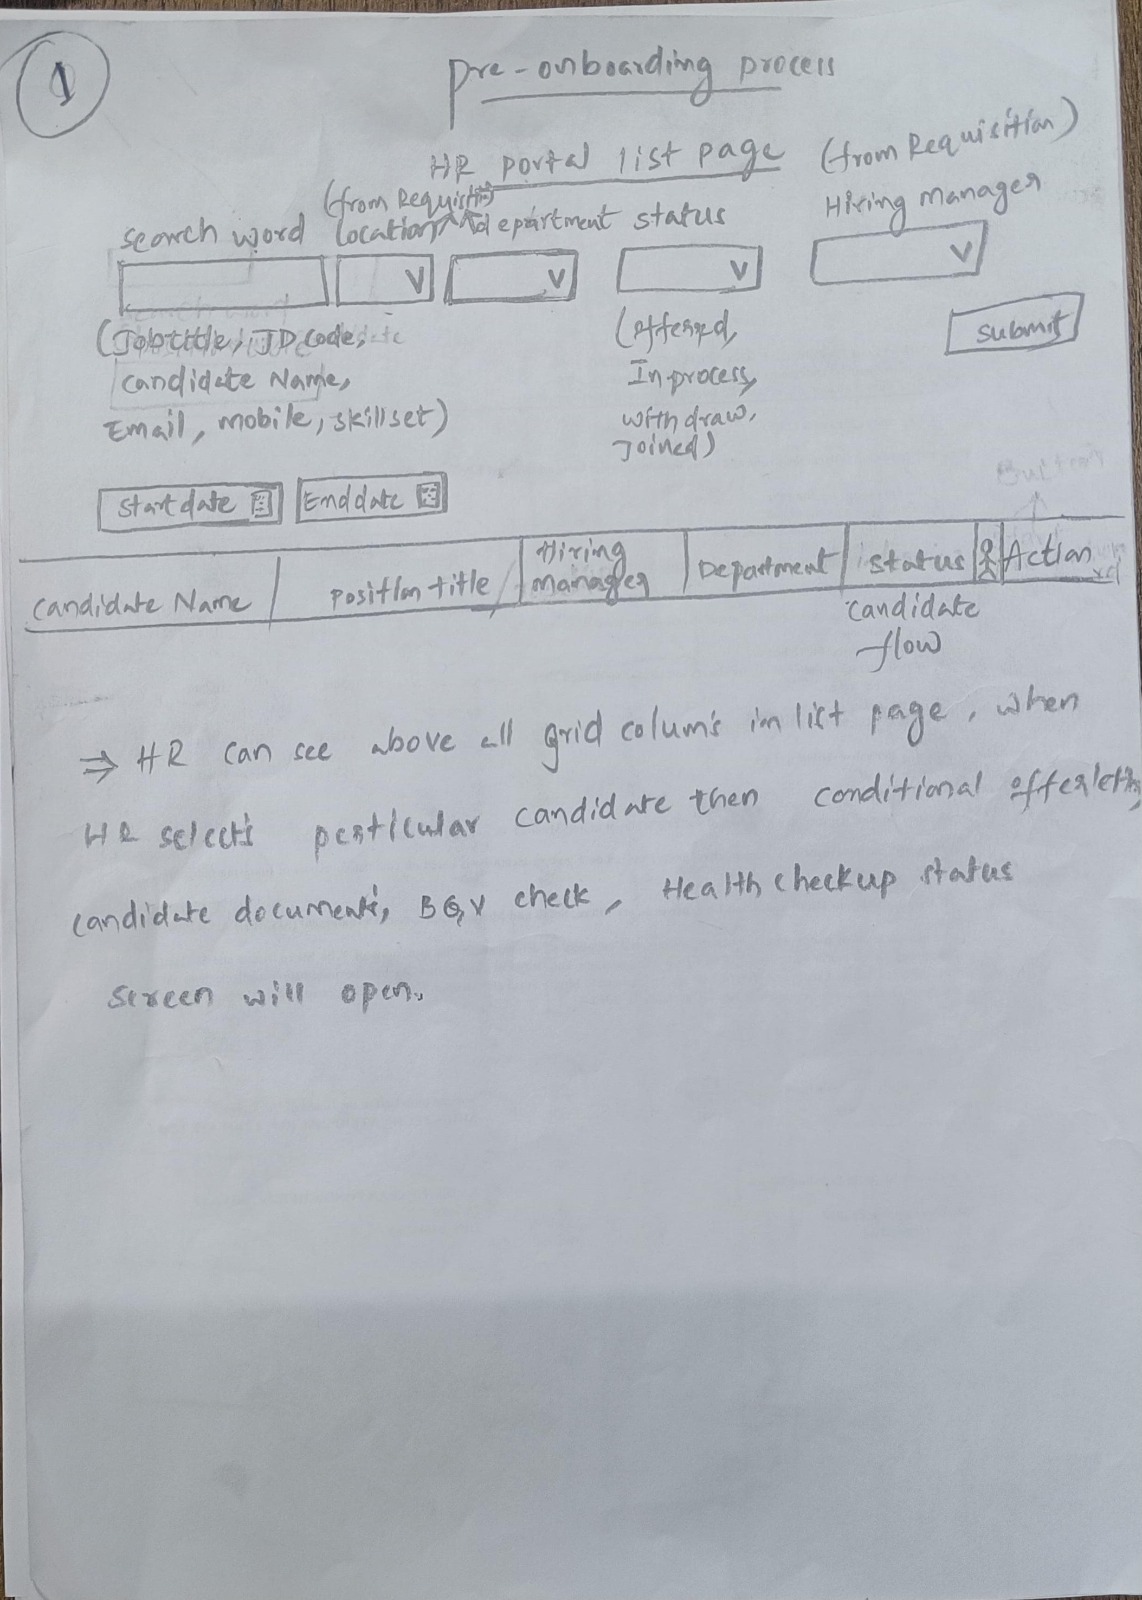 1
Pre-onboarding process
HR portal list page (from Requisition)
(from Requisition)
Search word location department status Hiring Manager
(Jobtitle, JD code, (offered,
submit
candidate Name, In process,
Email, mobile, skillset) withdraw,
Joined)
Button
Start date End date
candidate Name position title Hiring manager Department status Action
candidate
flow
⇒ HR can see above all grid colum's in list page, when
HR select's perticular candidate then conditional offerletter,
candidate document's, BGV check, Health checkup status
screen will open.